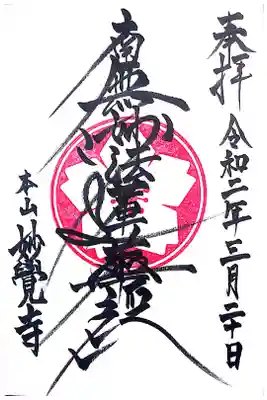 奉拝
令和二年三月二十日
南無妙法蓮華経
本山 妙覺寺